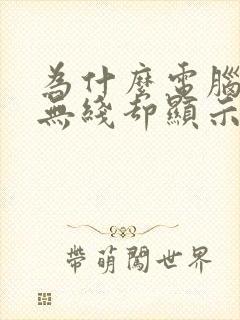 為什麼電腦
無綫却顯示
帶萌闖世界